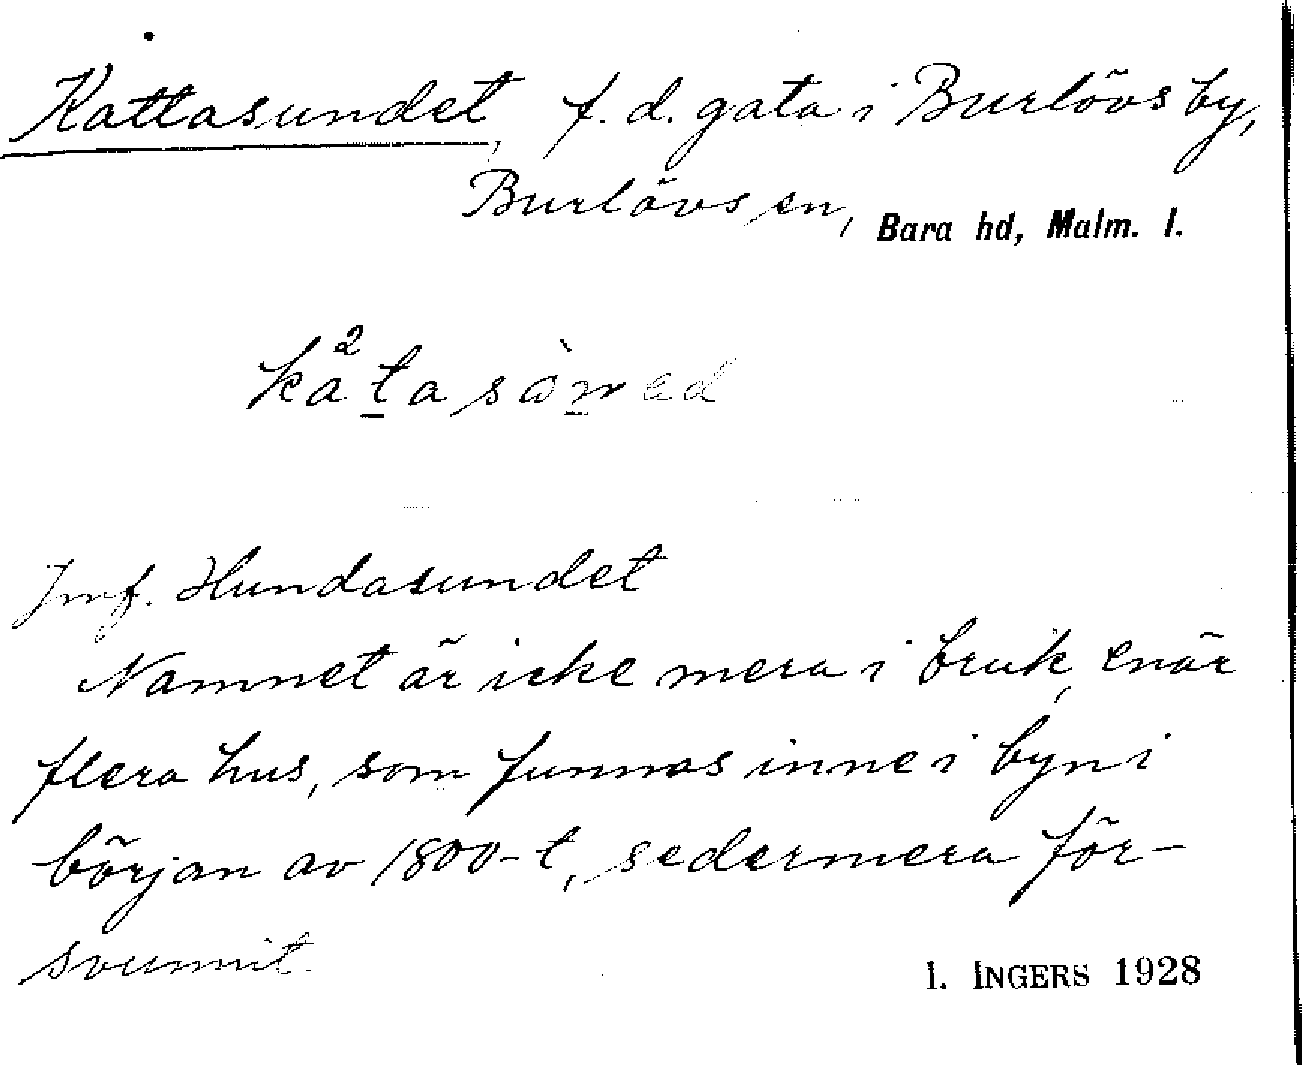 Kattasundet, f. d. gata i Burlövs by,
Burlövs sn, Bara hd, Malm. l.
Jmf. Hundasundet
Namnet är icke mera i bruk, enär
flera hus, som funnos inne i byn i
början av 1800-t, sedermera för-
svunnit.
I. INGERS 1928